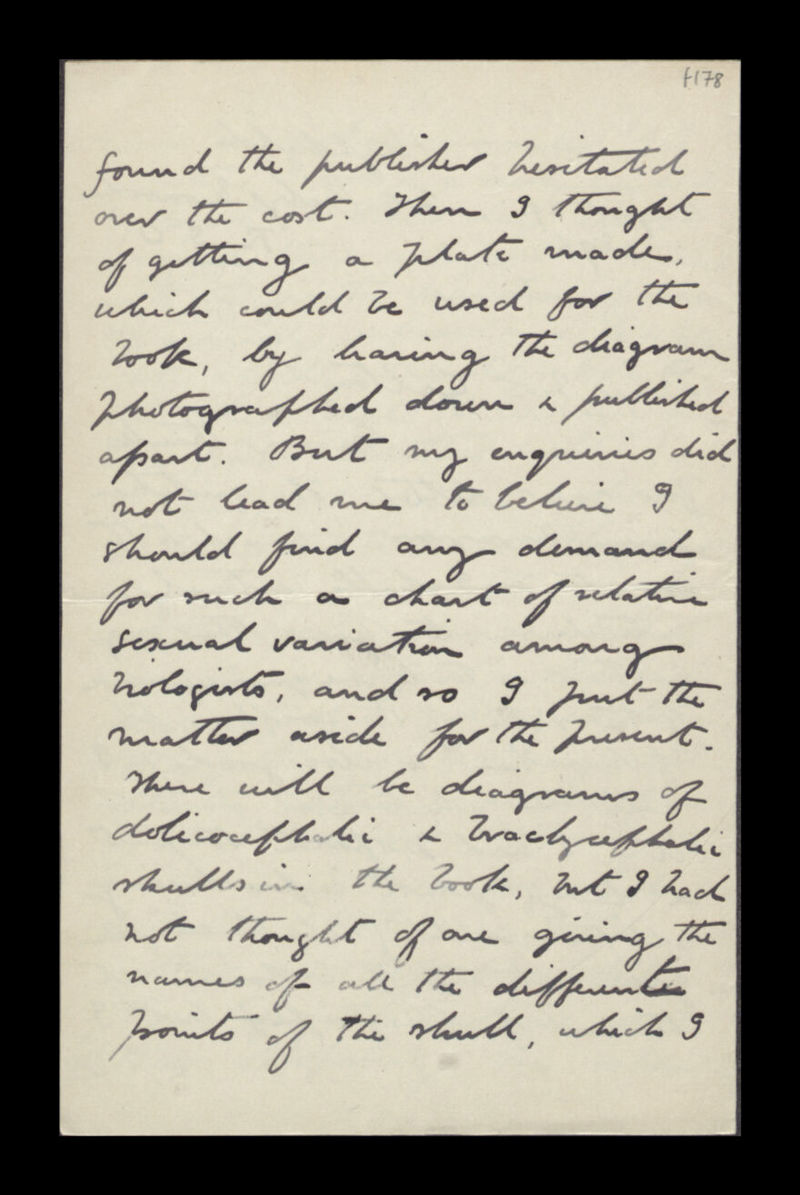 f178
found the publisher hesitated
over the cost. Then I thought
of getting a plate made,
which could be used for the
book, by having the diagram
photographed down & published
apart. But my enquiries did
not lead me to believe I
should find any demand
for such a chart of relative
sexual variation among
biologists, and so I put the
matter aside for the present.
There will be diagrams of
dolicocephalic & brachycephalic
skulls in the book, but I had
not thought of one giving the
names of all the different
points of the skull, which I